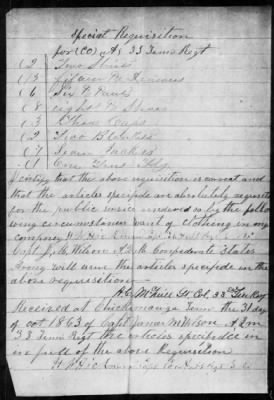 Special Requisition
for (CO) A, 33 Tenn Regt
(2 Two Shirts
(13
(6 Six P Pants
(8 eight P Shoes
(3 Three Caps
(2 Two Blankets
(7 Jackes
(1 One
I certify that the above requisition is correct and
that the articles specifide are absolutely requisite
for the public service rendered so by the follow
wing circumstances want of clothing in my
company
Capt J. M. Wilson A Q M Confederate States
Army will issue the articles specifide in the
above requisition
H. C. McNeill Lt. Col. 33rd Ten Reg
Received at Chickamauga Tenn the 31 day
of oct 1863 of Capt James M Wilson A Q M
33 Tenn Regt the articles specifide in
in full of the above Requisition